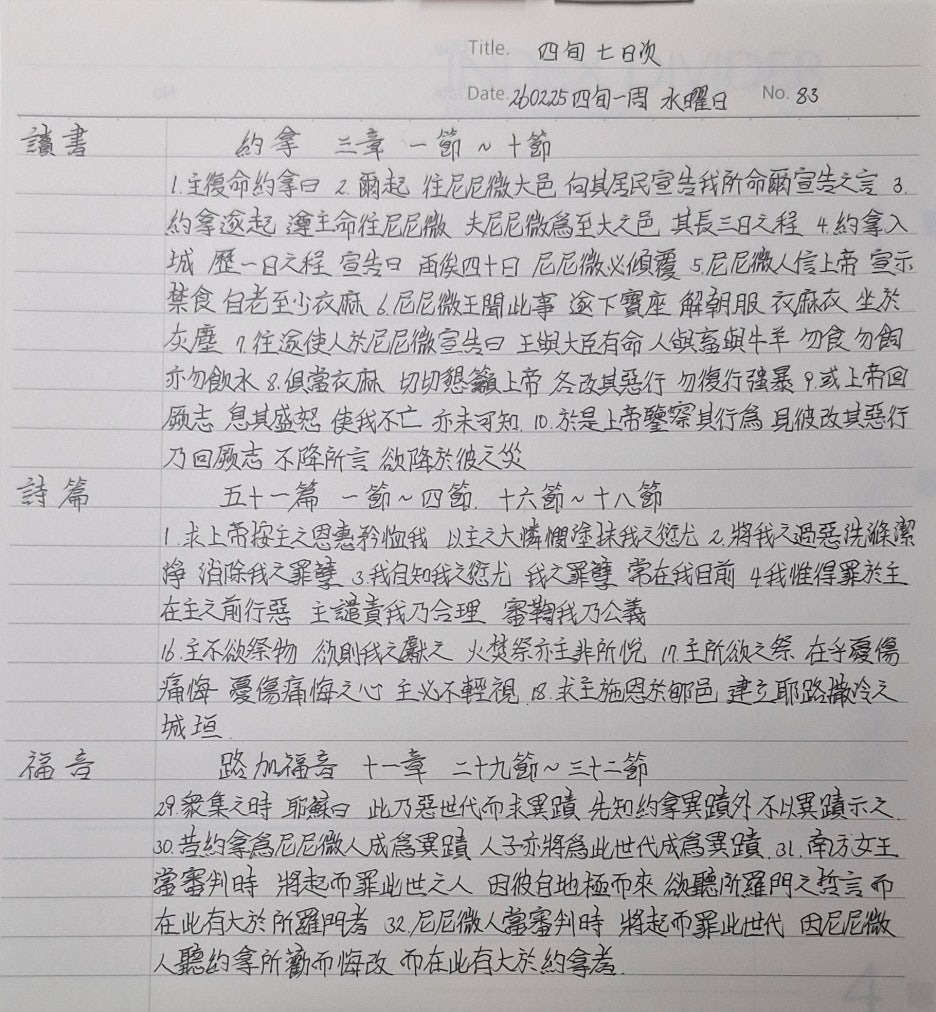 Title. 四旬 七日次
Date. 260225 四旬一周 水曜日 No. 83
讀書 約拿 三章 一節~十節
1.主復命約拿曰 2.爾起 往尼尼微大邑 向其居民宣告我所命爾宣告之言 3.
約拿遂起 遵主命往尼尼微 夫尼尼微為至大之邑 其長三日之程 4.約拿入
城 歷一日之程 宣告曰 再俟四十日 尼尼微必傾覆 5.尼尼微人信上帝 宣示
禁食 自老至少衣麻 6.尼尼微王聞此事 遂下寶座 解朝服 衣麻衣 坐於
灰塵 7.往遂使人於尼尼微宣告曰 王與大臣有命 人與畜與牛羊 勿食 勿飼
亦勿飲水 8.俱當衣麻 切切懇籲上帝 各改其惡行 勿復行強暴 9.或上帝回
厥志 息其盛怒 使我不亡 亦未可知. 10.於是上帝鑒察其行為 見彼改其惡行
乃回厥志 不降所言 欲降於彼之災
詩篇 五十一篇 一節~四節. 十六節~十八節
1.求上帝按主之恩惠矜恤我 以主之大憐憫塗抹我之愆尤 2.將我之過惡洗滌潔
淨 消除我之罪孽 3.我自知我之愆尤 我之罪孽 常在我目前 4.我惟得罪於主
在主之前行惡 主譴責我乃合理 審鞫我乃公義
16.主不欲祭物 欲則我之獻之 火焚祭亦主非所悅 17.主所欲之祭 在乎憂傷
痛悔 憂傷痛悔之心 主必不輕視. 18.求主施恩於郇邑 建立耶路撒冷之
城垣.
福音 路加福音 十一章 二十九節~三十二節
29.衆集之時 耶穌曰 此乃惡世代而求異蹟 先知約拿異蹟外 不以異蹟示之
30.昔約拿為尼尼微人成為異蹟 人子亦將為此世代成為異蹟. 31.南方女王
當審判時 將起而罪此世之人 因彼自地極而來 欲聽所羅門之哲言 而
在此有大於所羅門者 32.尼尼微人當審判時 將起而罪此世代 因尼尼微
人聽約拿所勸而悔改 而在此有大於約拿者.